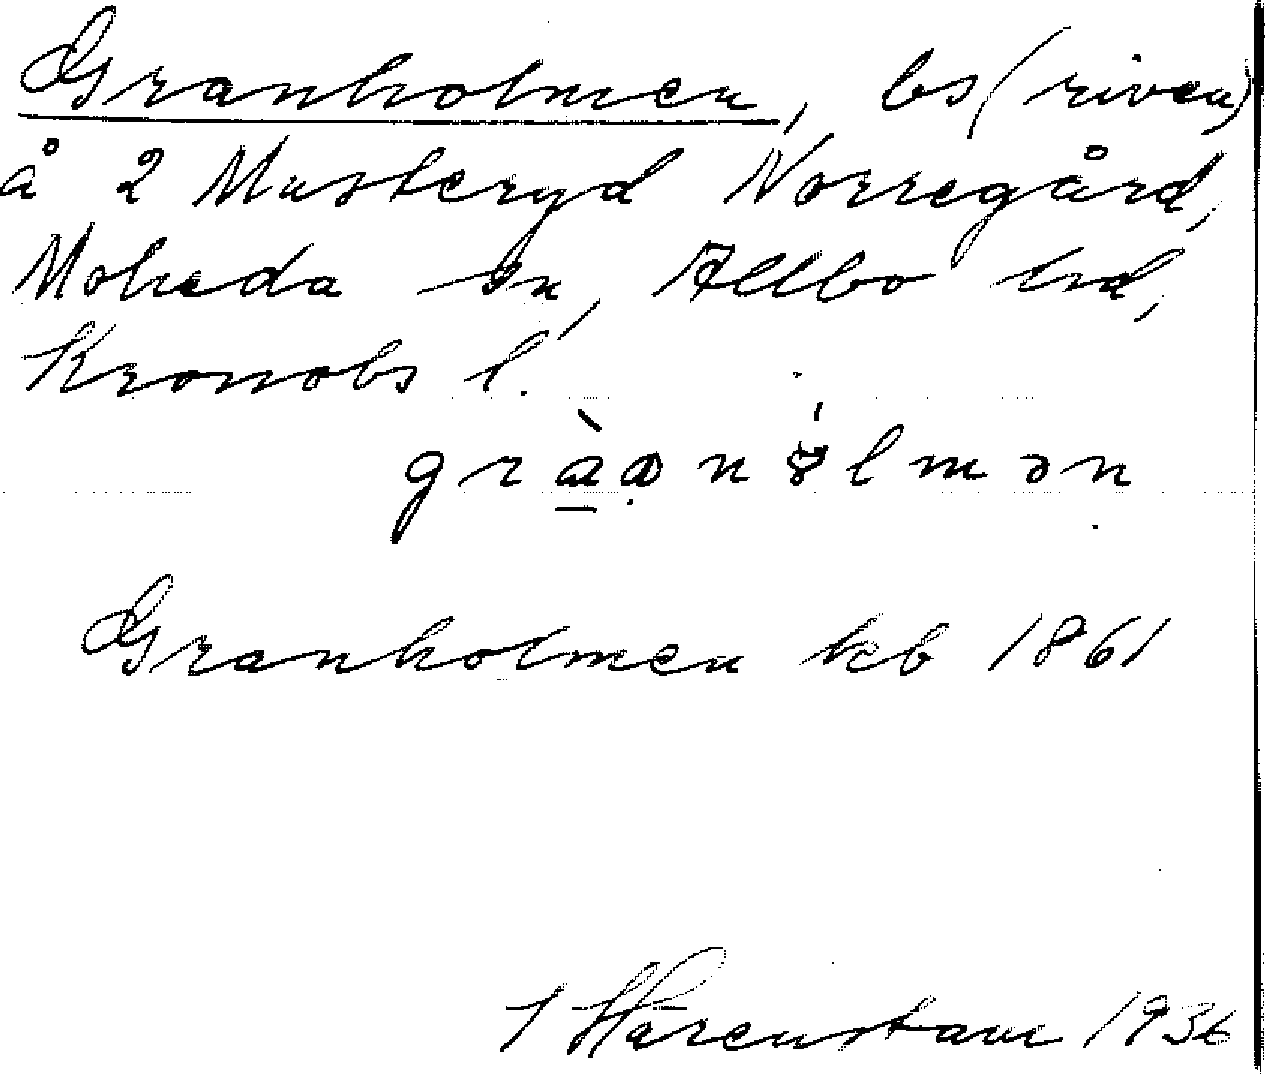 Granholmen, bs (riven)
å 2 Musteryd Norregård,
Moheda sn, Allbo hd,
Kronobs l.
Granholmen kb 1861
Härenstam 1936